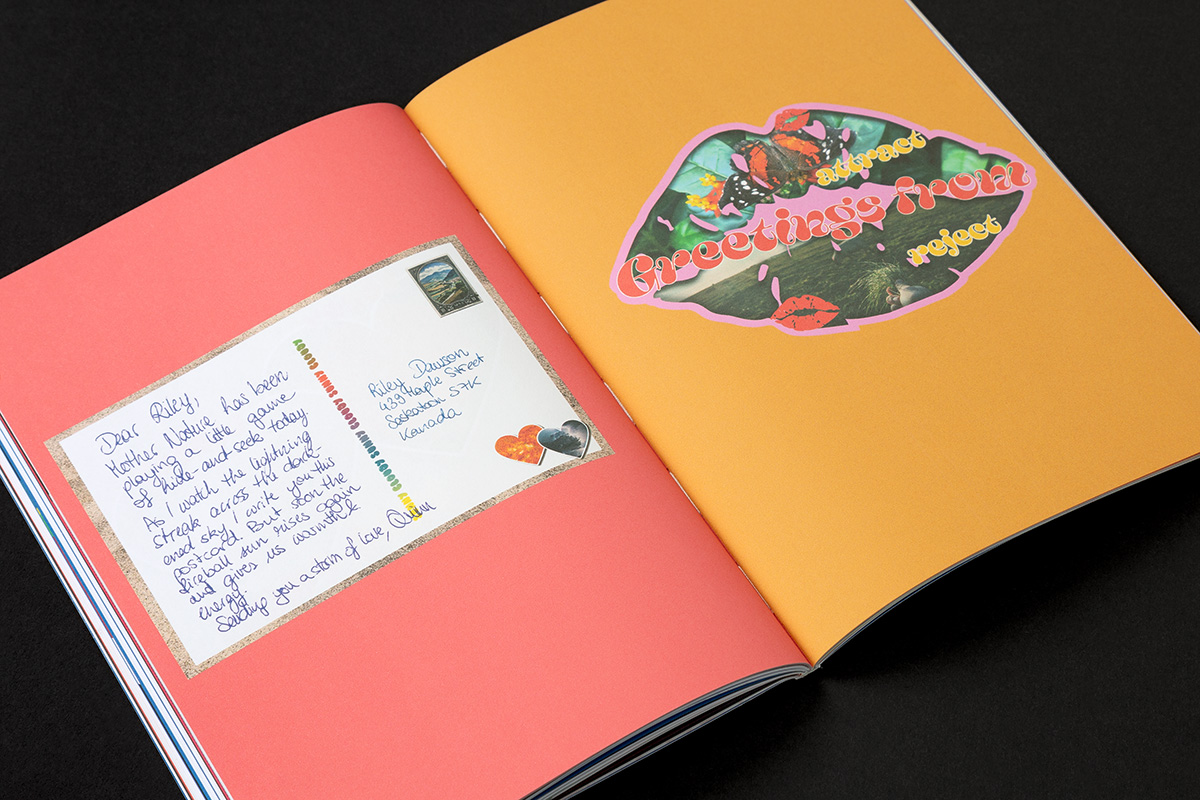 Dear Riley,
Mother Nature has been
playing a little game
of hide-and-seek today
As I watch the lightning
streak across the dark-
ened sky, I write you this
postcard. But soon the
fireball sun rises again
and gives us warmth &
energy.
Sending you a storm of love, Quinn
CLOUDY SUNNY CLOUDY SUNNY CLOUDY SUNNY
Riley Dawson
439 Maple Street
Saskatoon S7K
Kanada
attract
Greetings from
reject